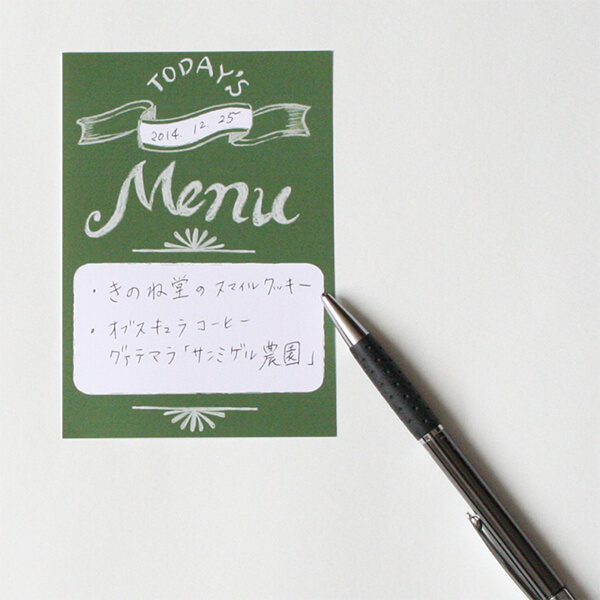 TODAY'S
2014. 12. 25
Menu
・きのね堂のスマイルクッキー
・オブスキュラコーヒー
グァテマラ「サンミゲル農園」